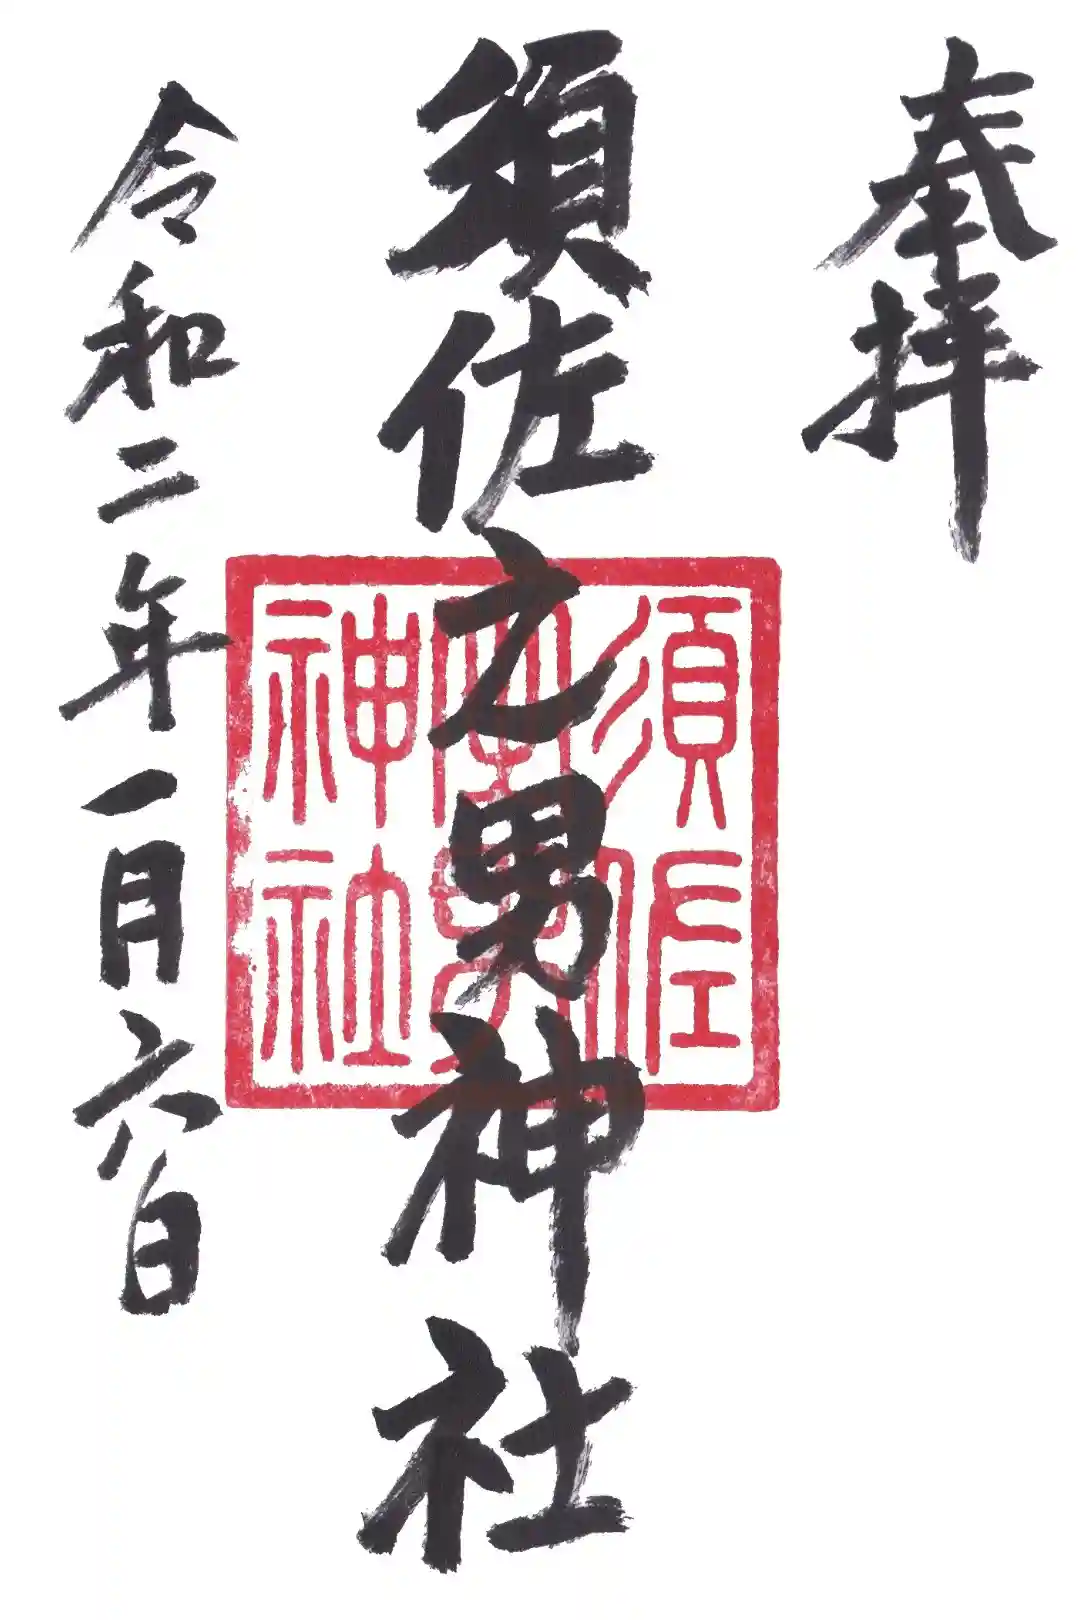 奉拝
須佐之男神社
須佐
神社
令和二年一月六日